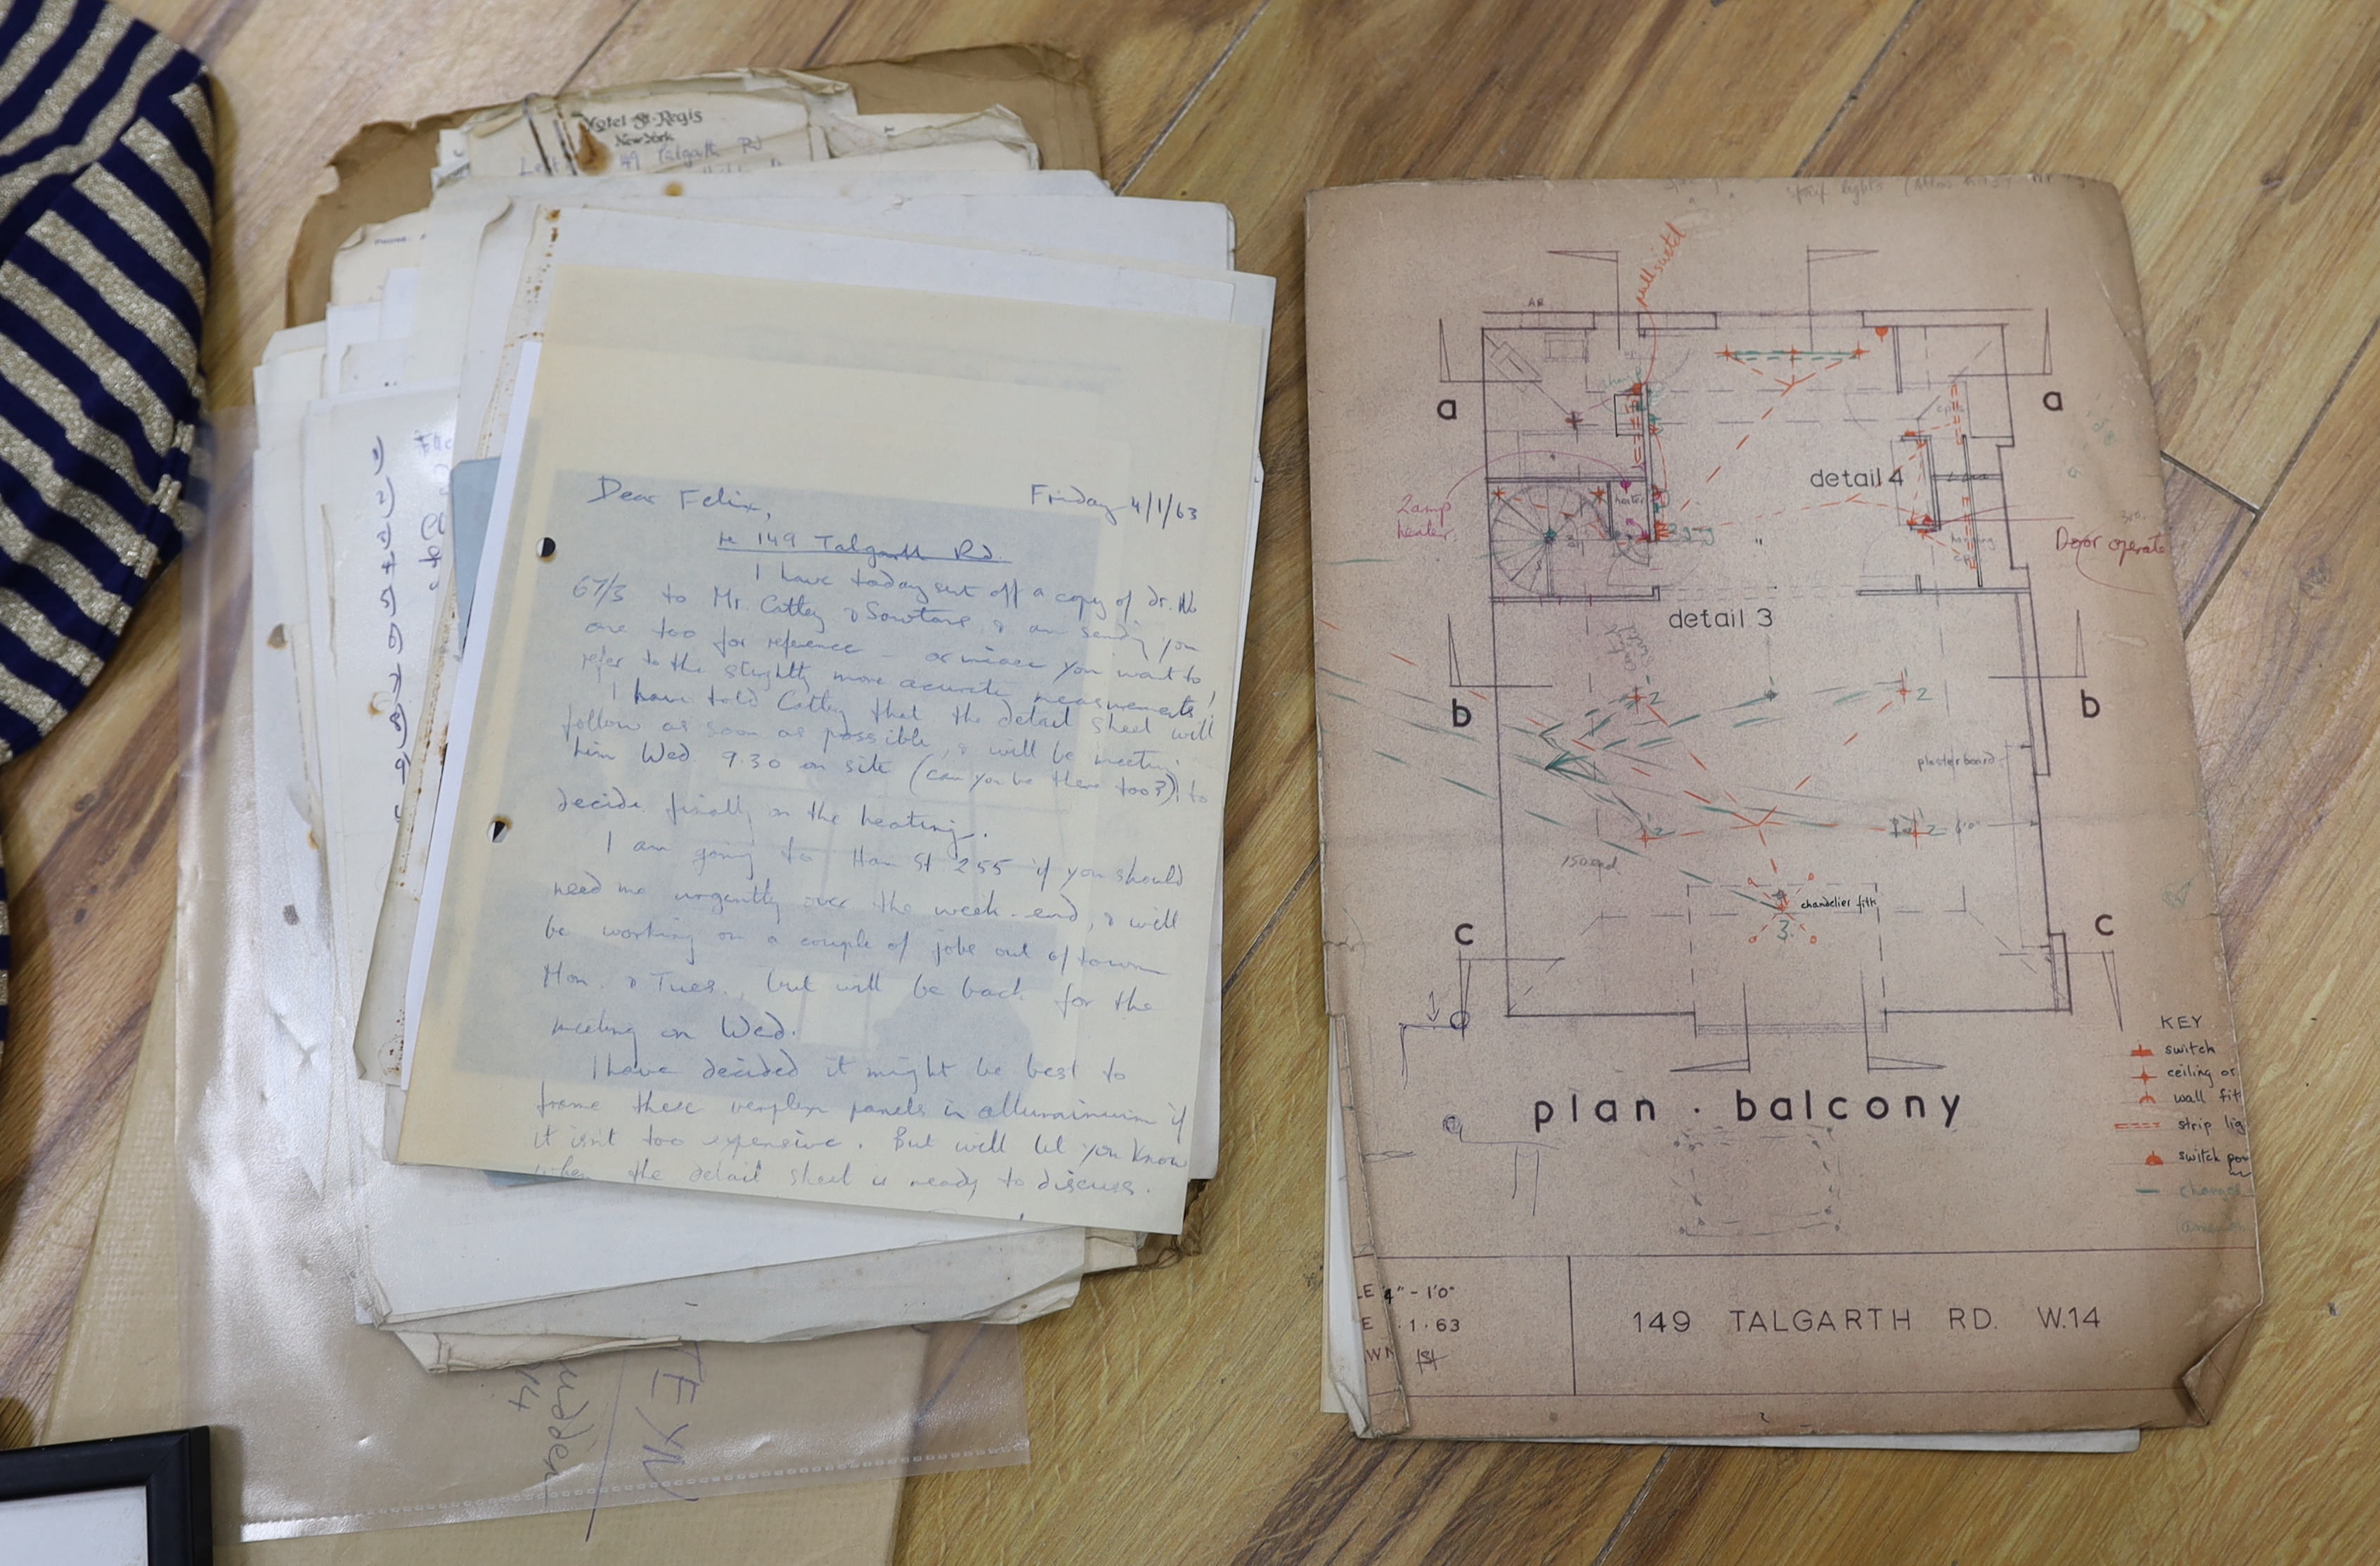 Hotel St. Regis
New York
49 Talgarth Rd
PHONE:
Dear Felix,
Friday 4/1/63
re 149 Talgarth Rd.
I have today sent off a copy of dr. No
67/3 to Mr. Cattey & Sowtans, & am sending you
one too for reference – or incase you want to
refer to the slightly more acurate measurements!
I have told Cattey that the detail sheet will
follow as soon as possible, & will be meeting
him Wed 9.30 on site (can you be there too?) to
decide finally on the heating.
I am going to Ham St 255 if you should
need me urgently over the week-end, & will
be working on a couple of jobs out of town
Mon. & Tues., but will be back for the
meeting on Wed.
I have decided it might be best to
frame these panels in alluminium if
it isn't too expensive. But will let you know
when the detail sheet is ready to discuss.
strip lights
pullswitch
AB
a
a
detail 4
2amp
heater
heater
Door operate
detail 3
2
2
b
b
plasterboard
2
2
chandelier fitt
3
c
c
KEY
switch
ceiling or
wall fit
strip lig
switch po
change
plan · balcony
LE 1/4" - 1'0"
E .1.63
WN
149 TALGARTH RD. W.14
14